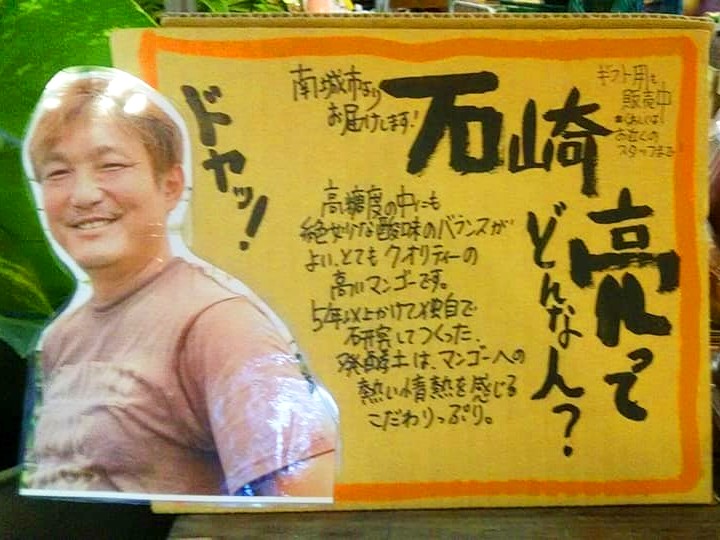 ドヤッ!
南城市より
お届けします!
石崎
亮って
どんな人?
ギフト用も
販売中
*くわしくは
お近くの
スタッフまで
高糖度の中にも
絶妙な酸味のバランスが
よい、とてもクオリティーの
高いマンゴーです。
5年以上かけて独自で
研究してつくった
発酵土は、マンゴーへの
熱い情熱を感じる
こだわりっぷり。